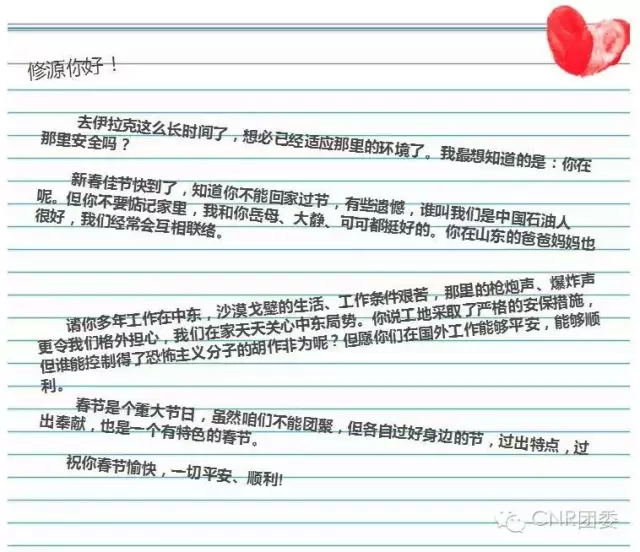 修源你好！
去伊拉克这么长时间了，想必已经适应那里的环境了。我最想知道的是：你在
那里安全吗？
新春佳节快到了，知道你不能回家过节，有些遗憾，谁叫我们是中国石油人
呢。但你不要惦记家里，我和你岳母、大静、可可都挺好的。你在山东的爸爸妈妈也
很好，我们经常会互相联络。
请你多年工作在中东，沙漠戈壁的生活、工作条件艰苦，那里的枪炮声、爆炸声
更令我们格外担心，我们在家天天关心中东局势。你说工地采取了严格的安保措施，
但谁能控制得了恐怖主义分子的胡作非为呢？但愿你们在国外工作能够平安，能够顺
利。
春节是个重大节日，虽然咱们不能团聚，但各自过好身边的节，过出特点，过
出奉献，也是一个有特色的春节。
祝你春节愉快，一切平安、顺利!
CNR团委